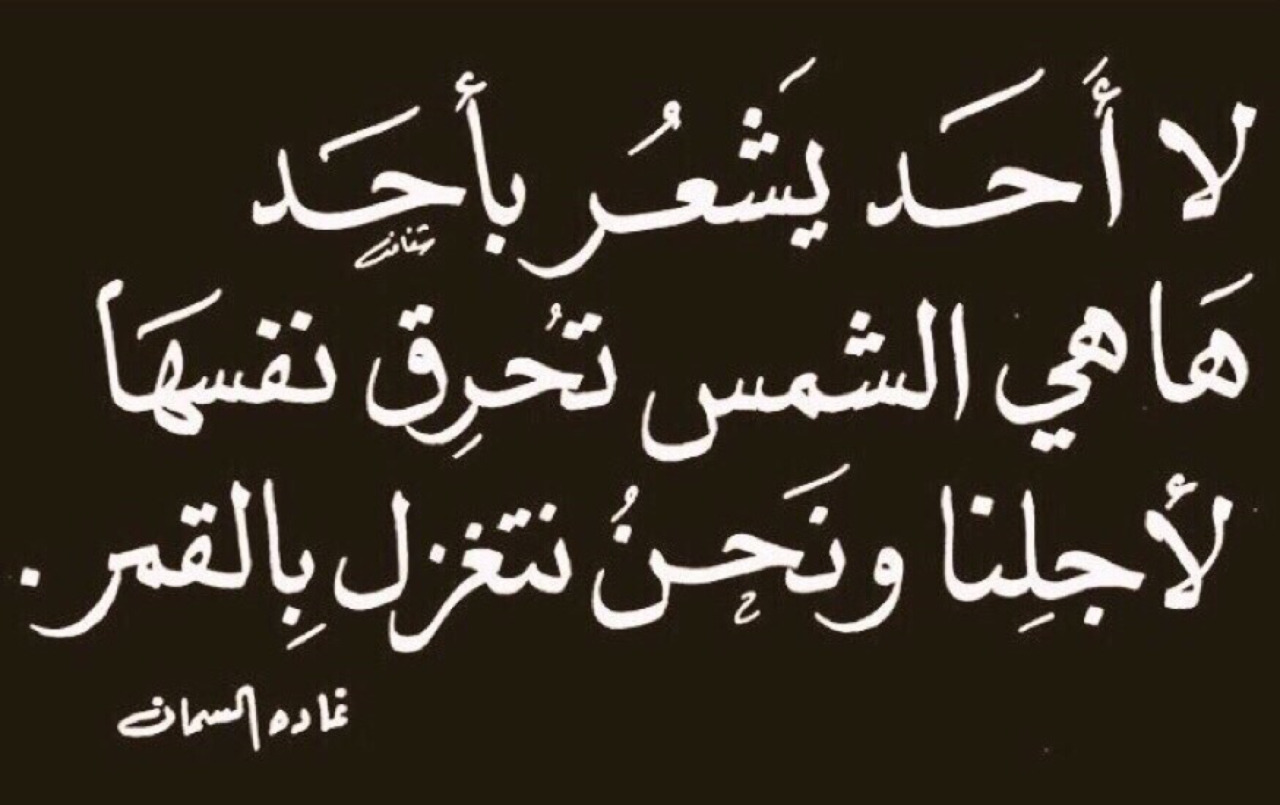 لا أَحَد يَشْعُر بأحَد
هَا هي الشمس تحُرِق نفسهَا
لأجلِنا ونَحنُ نتغزل بِالقمر .
غاده السمان